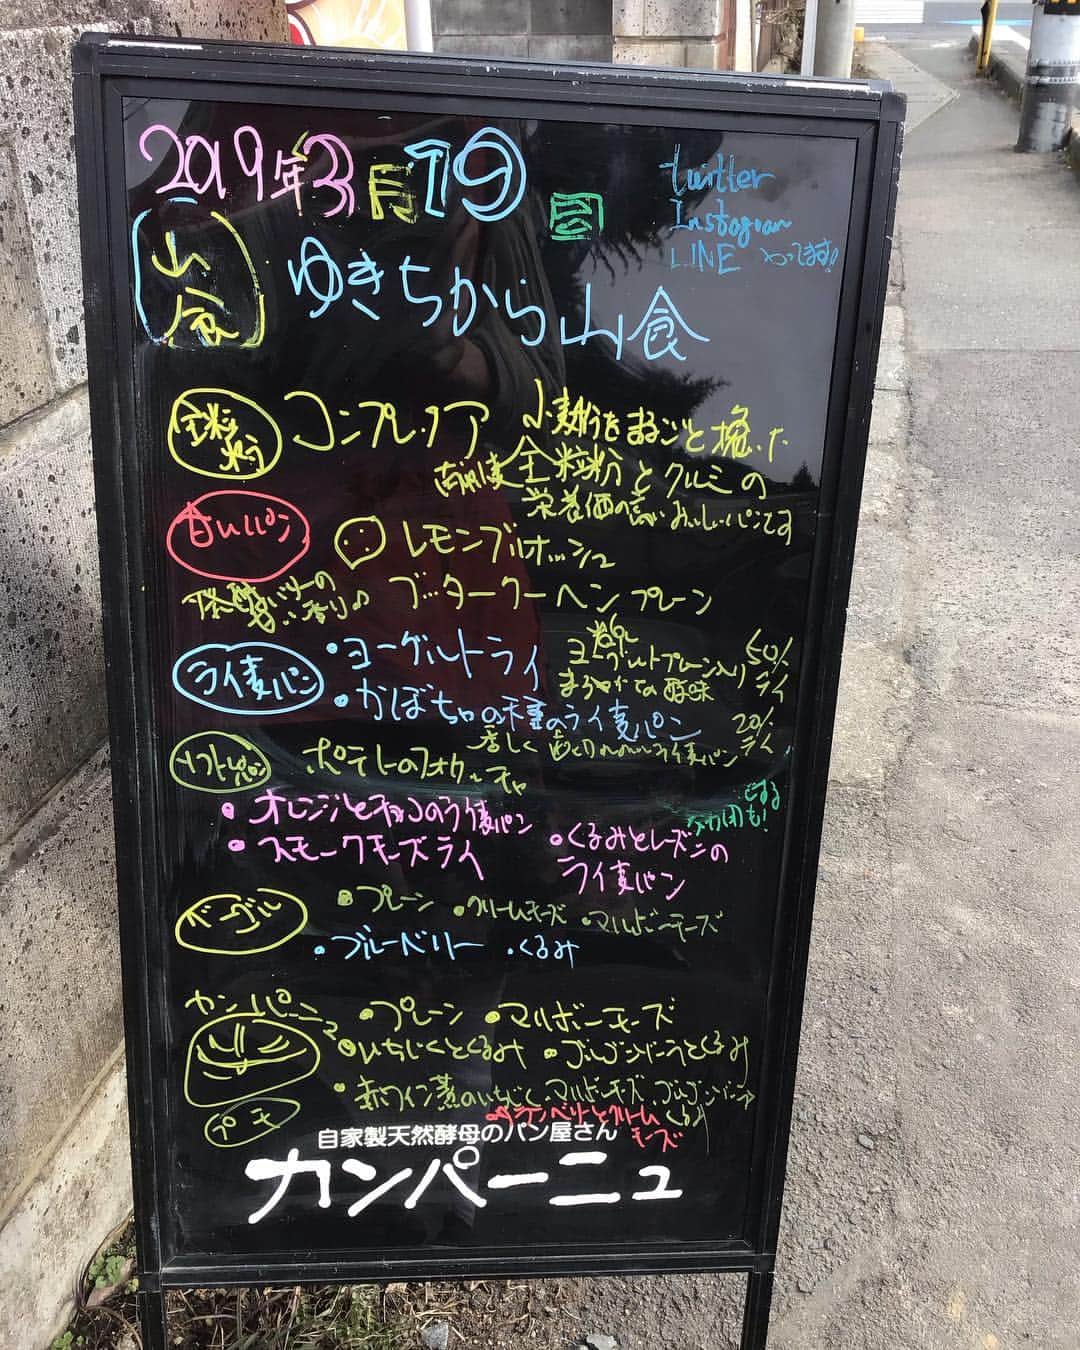 2019年3月19
twitter
Instagram
LINE やってます!!
山食
ゆきちから山食
全粒粉
コンプレックア
小麦粉をまるごと挽いた
全粒粉とクルミの
栄養価の高いおいしいパンです
甘いパン
レモンブリオッシュ
発酵バターの
香り♪
ブッタークーヘン プレーン
ライ麦パン
・ヨーグルトライ
ヨーグルトプレーン入り 50%
まろやかな酸味 ライ
・かぼちゃの種のライ麦パン
20%
ライ
香ばしく
ライ麦パン
ソフトパン
ポテトのフォカッチャ
・オレンジとチョコのライ麦パン
・スモークチーズライ
・くるみとレーズンの
ライ麦パン
ベーグル
・プレーン ・クリームチーズ ・マルボーチーズ
・ブルーベリー ・くるみ
カンパーニュ
・プレーン ・マルボーチーズ
・いちじくとくるみ ・ゴルゴンゾーラとくるみ
プチ
・赤ワイン煮のいちじく、マルボーチーズ、ゴルゴンゾーラ
くるみ
・クランベリーとクリーム
チーズ
自家製天然酵母のパン屋さん
カンパーニュ